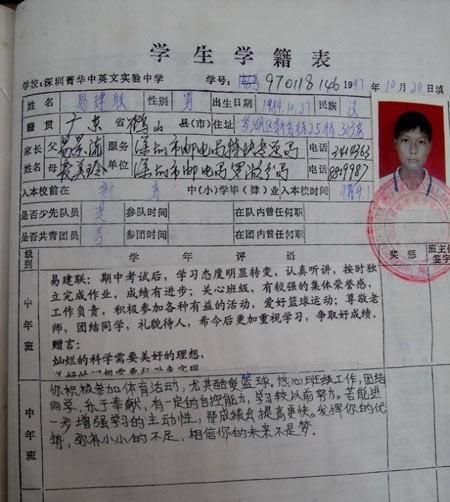 学生学籍表
学校:深圳菁华中英文实验中学 学号: 970118146 1997年10月20日填
姓名 易建联 性别 男 出生日期 1984.10.27 民族 汉
籍贯 广东省鹤山县(市) 住址
家长 父 易景流 服务 深圳市邮电局特快专递局 电话
姓名 母 麦美玲 单位 深圳市邮电局 电话
入本校前在 中(小)学毕(肄)业入本校时间
是否少先队员 参队时间 在队内曾任何职
是否共青团员 参团时间 在团内曾任何职
级别 学年评语 奖惩 班主任签字
中年班
易建联:期中考试后,学习态度明显转变,认真听讲,按时独
立完成作业,成绩有进步;关心班级,有较强的集体荣誉感,
工作负责,积极参加各种有益的活动,爱好篮球运动;尊敬老
师,团结同学,礼貌待人,希今后更加重视学习,争取好成绩。
赠言:
灿烂的科学需要美好的理想,
中年班
你积极参加体育活动,尤其酷爱篮球。热心班级工作,团结
同学,乐于奉献,有一定的自控能力,学习较以前努力。若能进
一步增强学习的主动性,那成绩会提高更快。发挥你的优
势,弥补小小的不足,相信你的未来不是梦.